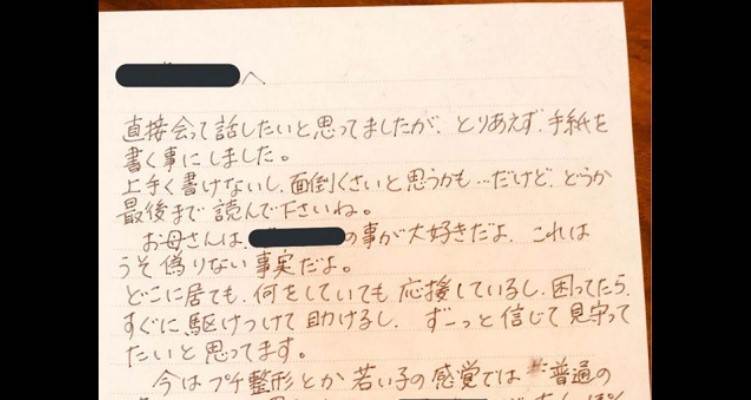 へ
直接会って話したいと思ってましたが、とりあえず、手紙を
書く事にしました。
上手く書けないし、面倒くさいと思うかも…だけど、どうか
最後まで読んで下さいね。
お母さんは、の事が大好きだよ、これは
うそ偽りない事実だよ。
どこに居ても、何をしていても応援しているし、困ってたら、
すぐに駆けつけて助けるし、ずーっと信じて見守って
たいと思ってます。
今はプチ整形とか若い子の感覚では"普通の